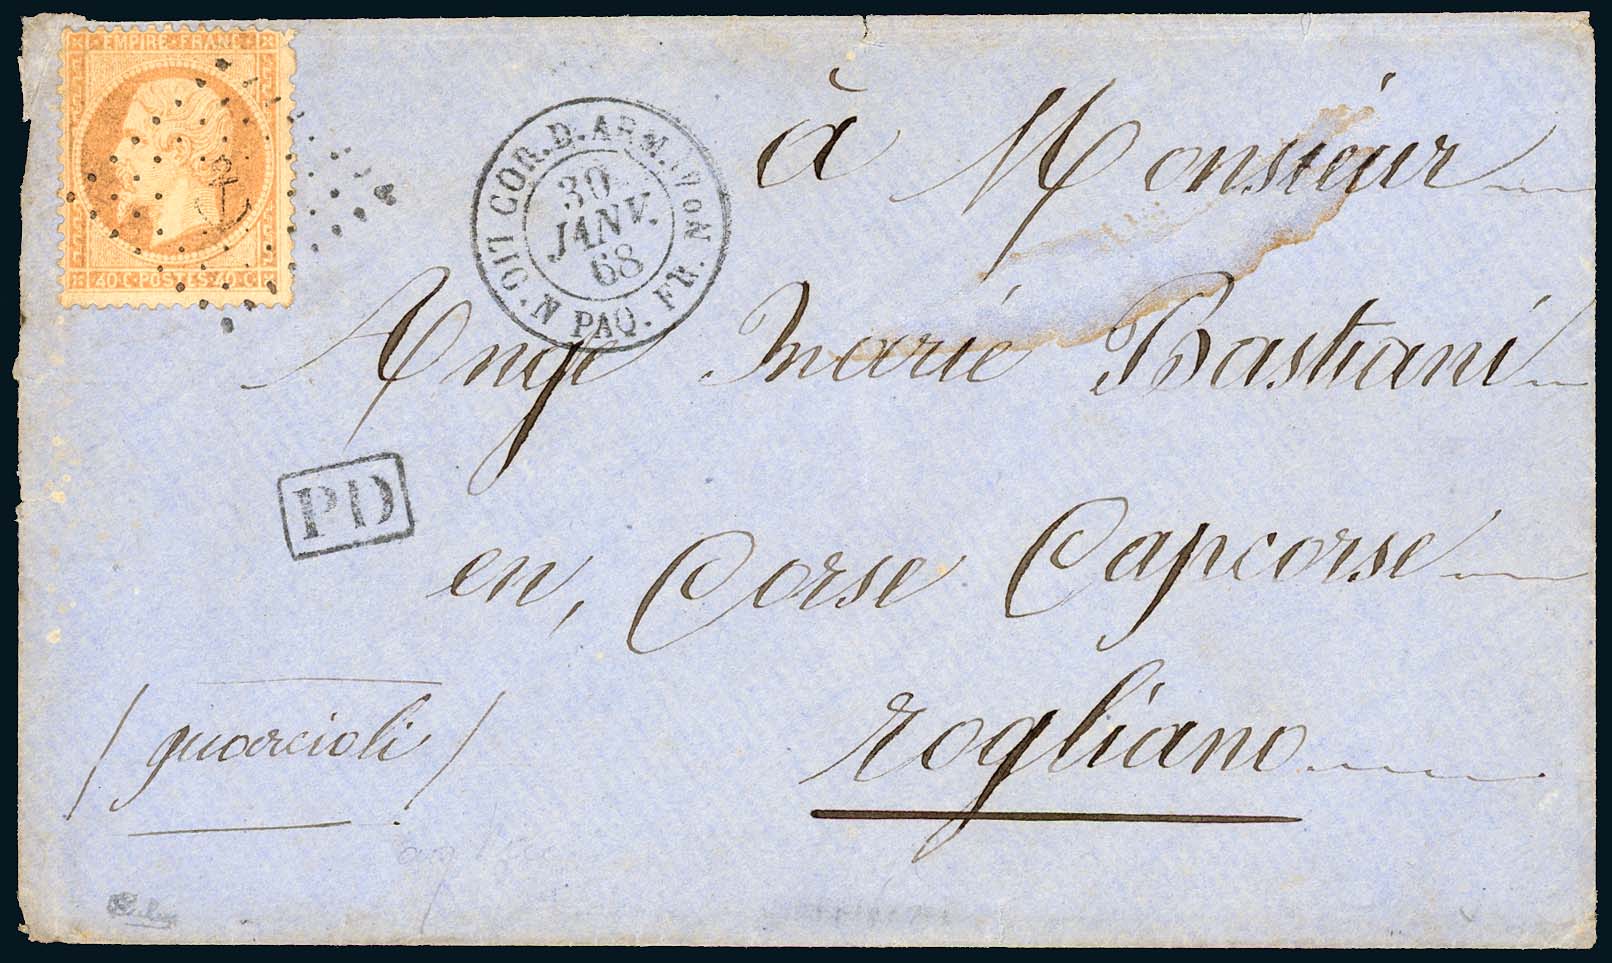 EMPIRE FRANC
40 C POSTES 40 C
COR. D. ARM. LYON
30
JANV.
68
PAQ. FR. N
PD
à Monsieur
Ange Marie Bastiani
en, Corse Capcorse
rogliano
/ quercioli /